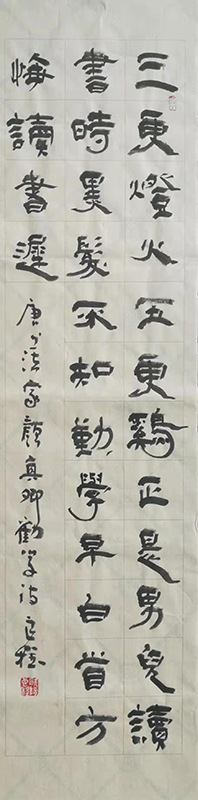 三更燈火五更鷄正是男兒讀
書時黑髮不知勤學早白首方
悔讀書遲
唐书法家顏真卿勸学诗良